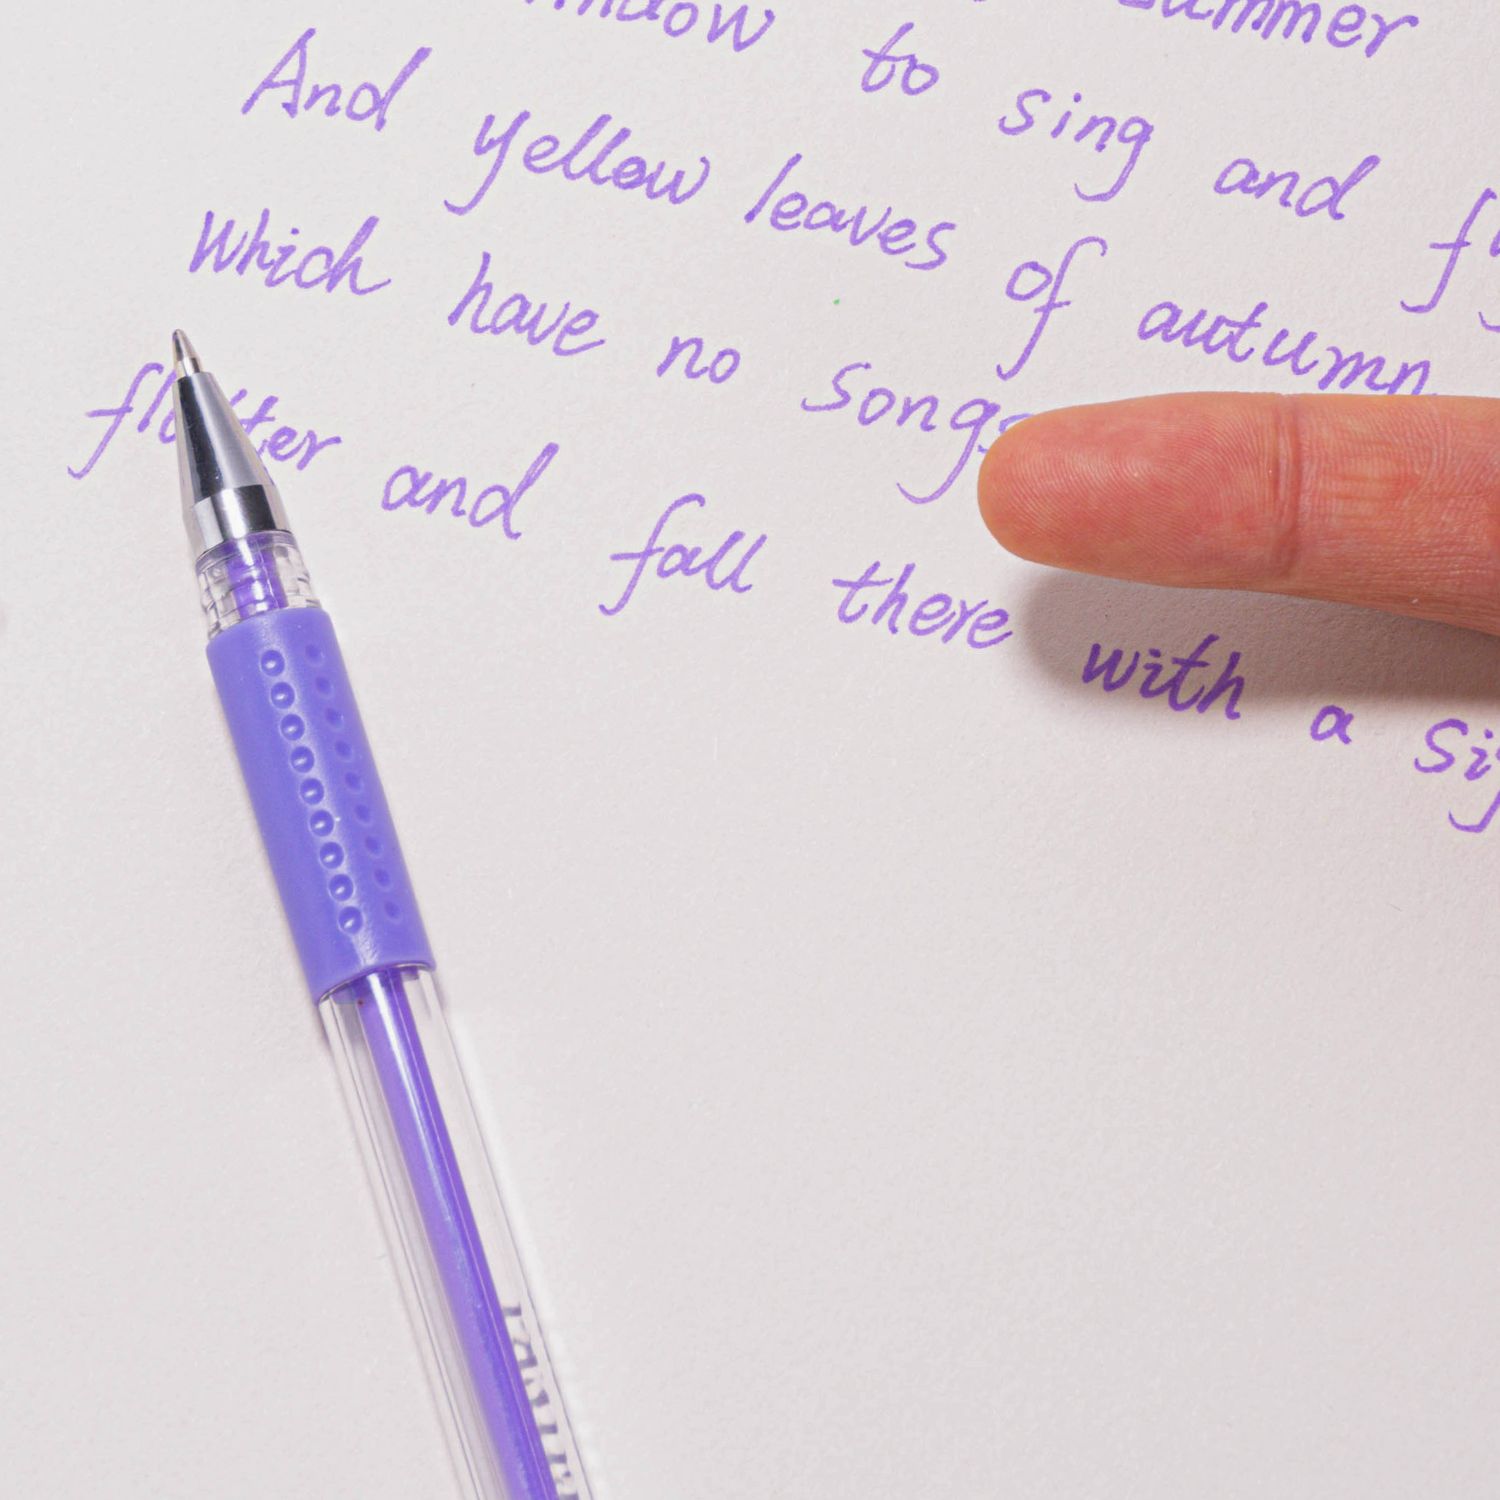 summer
window to sing and
And yellow leaves of autumn
Which have no songs
flutter and fall there with a